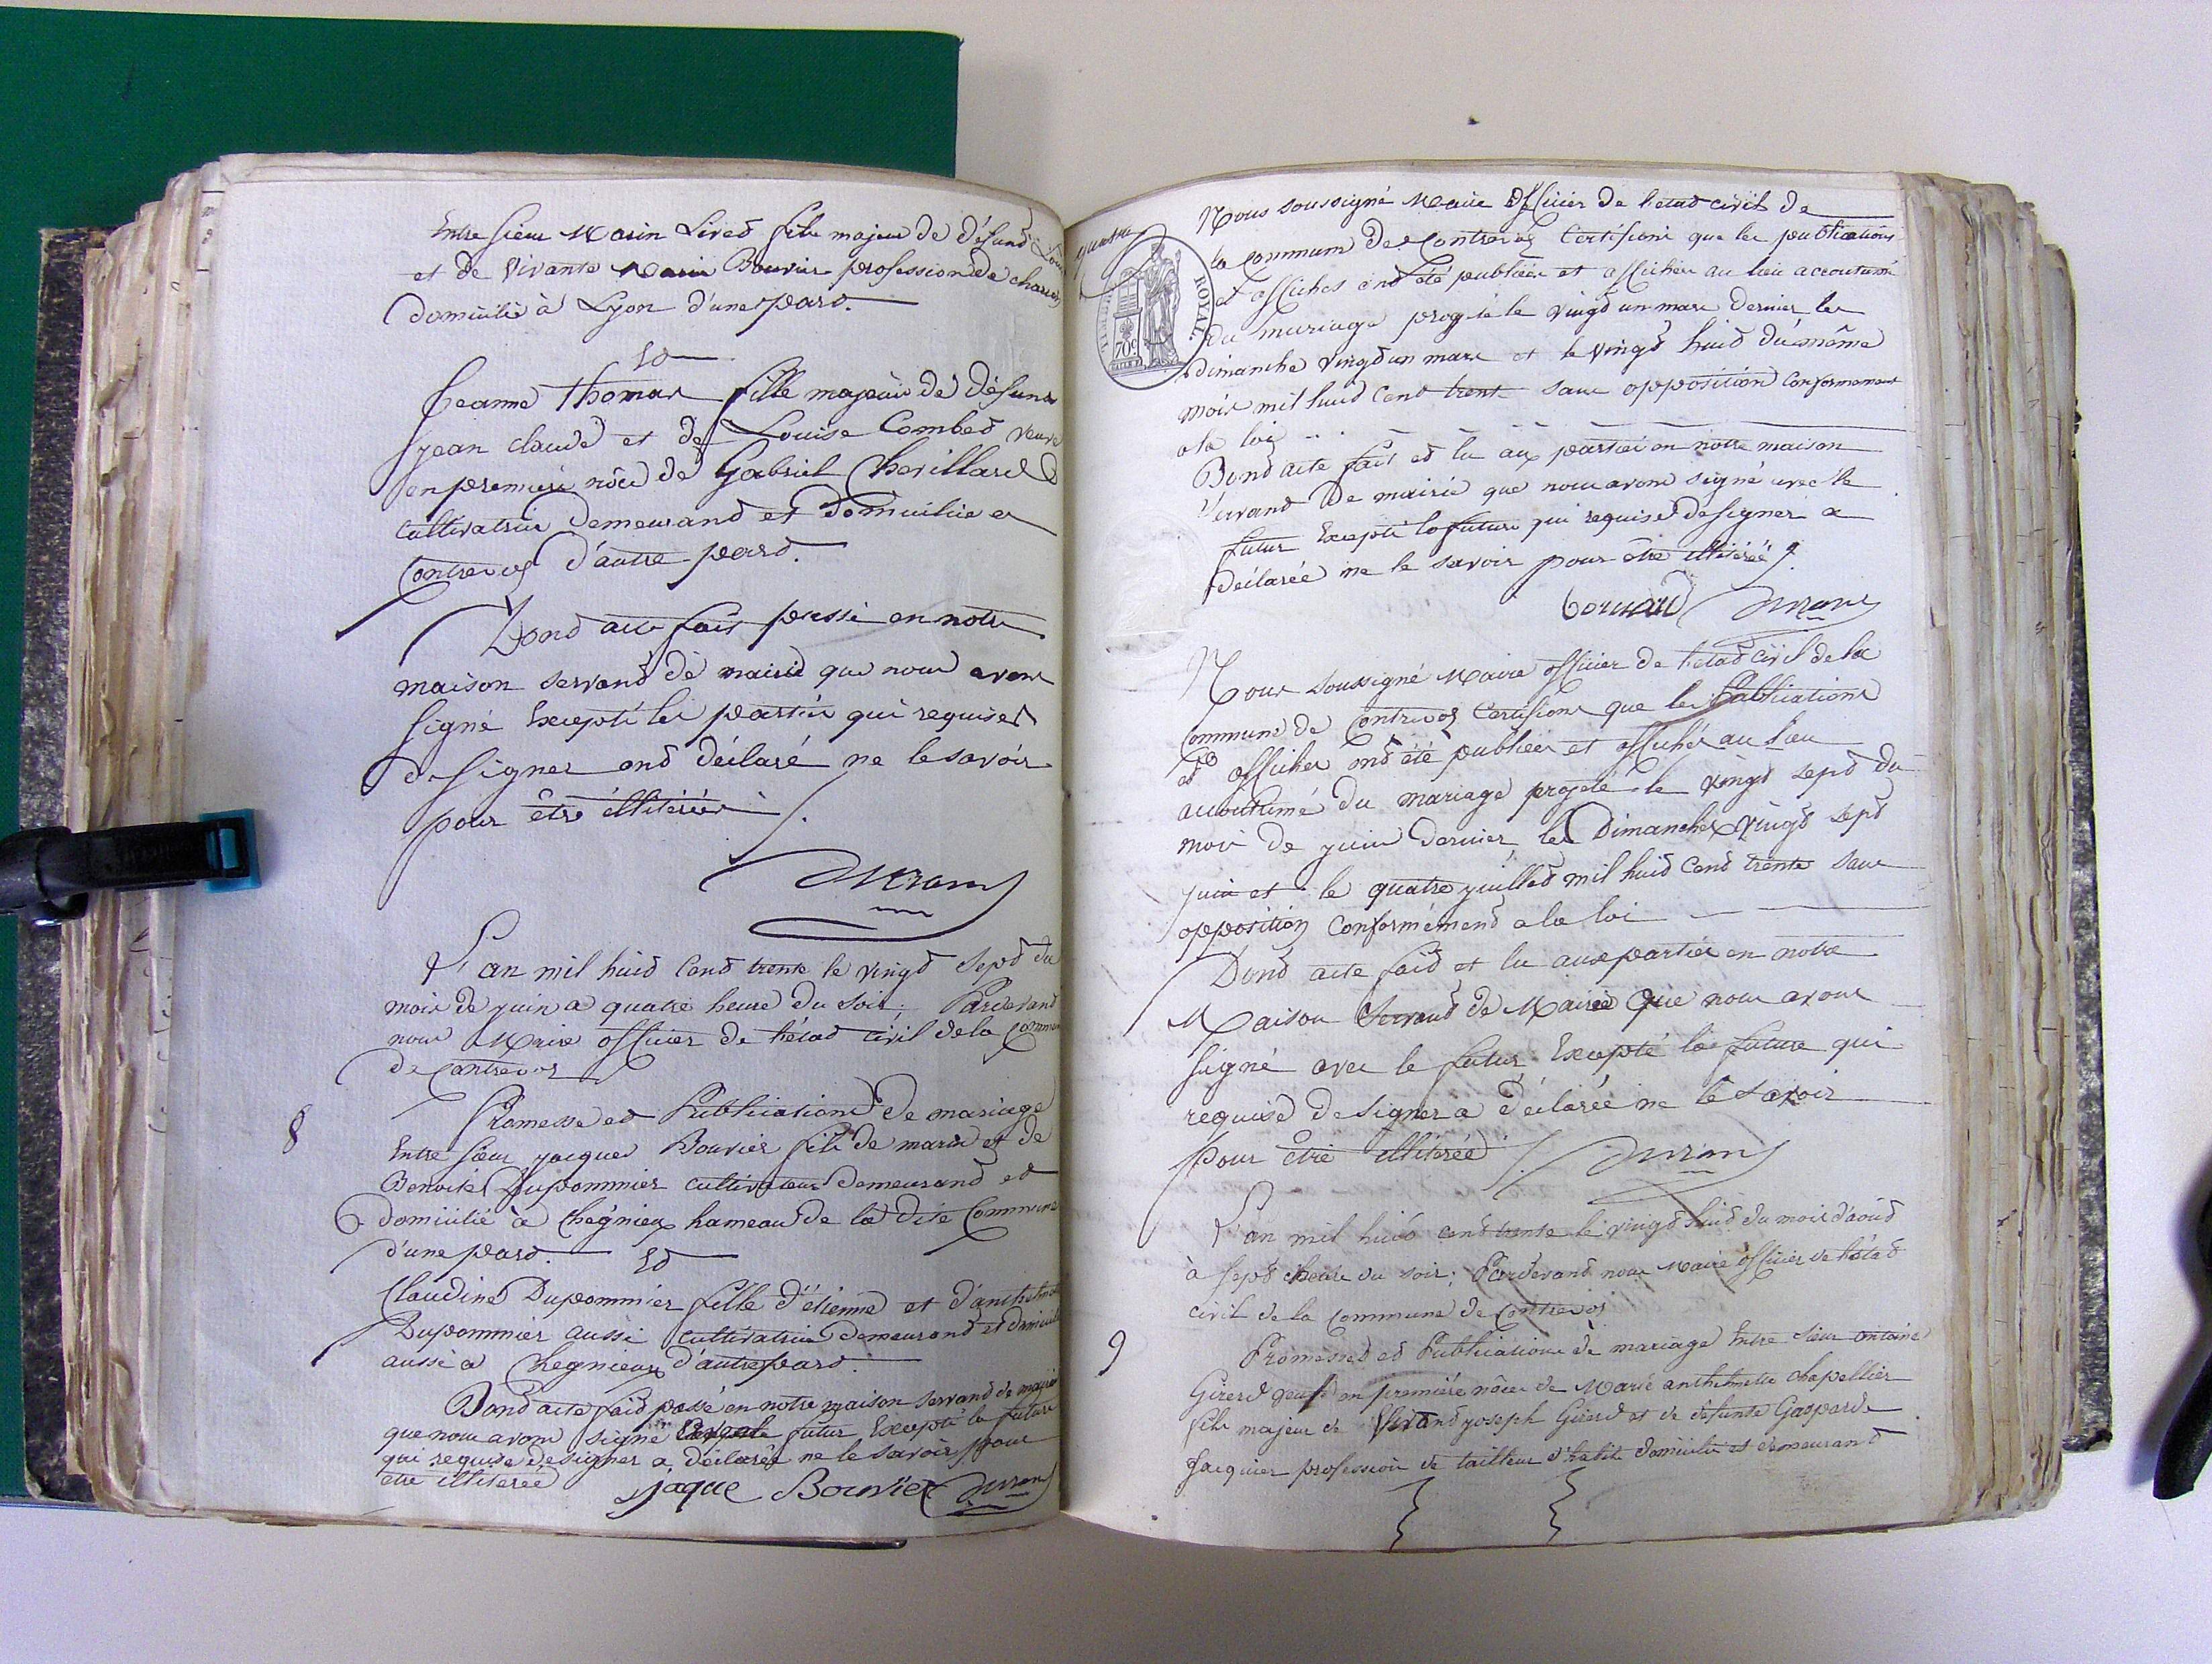 Entre sieur Marin Lived fils majeur de défund
et de vivante Marie Bouvier profession de
domicilié à Lyon d'une pard.
Ed
Jeanne Thomas fille majeure de défund
jean claude et de Louise Combed veuve
en premiere nôce de Gabriel Chevillard
cultivatrice demeurand et domiciliée a
Contrevoz d'autre pard.
Dond acte fait passé en notre
maison servand de mairie que nous avons
signé Excepté les parties qui requises
de signer ond déclaré ne le savoir
pour être illiterées /.
L'an mil huid cend trente le vingd sepd du
mois de juin a quatre heure du soir; Pardevand
nous Maire officier de l'étad civil de la Commune
de Contrevoz
8
Promesse ed Publications de mariage
Entre sieur jacques Bouvier fils de marin et de
Benoite Dupommier cultivateur demeurand ed
domicilié à Chegnieux hameau de la dite Commune
d'une pard. Ed
Claudine Dupommier fille d'étienne et d'anthelmette
Dupommier aussi cultivatrice demeurand et domiciliée
aussi a Chegnieux d'autre pard.
Dond acte faid passé en notre maison servand de mairie
que nous avons signé futur Excepté la future
qui requise de signer a déclarée ne le savoir pour
être illiterée jaque Bouvier
ROYAL
70c
Nous soussigné Maire Officier de l'etad civil de
la commune de Contrevoz Certifions que les publications
et affiches ond été publiées et affichées au lieu accoutumé
du mariage progeté le vingd un mars dernier les
dimanche vingd un mars et le vingd huid du même
mois mil huid cend trente sans opposition conformement
a la loi
Dond acte fait ed lu aux parties en notre maison
servand de mairie que nous avons signé avec le
futur Excepté la future qui requise de signer a
déclarée ne le savoir pour être illiterée /.
Nous soussigné Maire officier de l'etad civil de la
Commune de Contrevoz Certifions que les Publications
et affiches ond été publiées et affichés au lieu
accoutumé du mariage projeté le vingd sepd du
mois de juin dernier les Dimanches vingd sepd
juin et le quatre juilled mil huid cend trente sans
opposition conformémend a la loi
Dond acte faid et lu aux parties en notre
Maison servand de Mairie que nous avons
signé avec le futur Excepté la future qui
requise de signer a déclarée ne le savoir
pour être illiterée /.
L'an mil huid cend trente le vingd huid du mois d'aoud
à sepd heure du soir; Pardevand nous Maire officier de l'étad
civil de la Commune de Contrevoz
9
Promesses ed Publications de mariage Entre sieur antoine
Girerd veuf en première nôce de Marie anthelmette Chapellier
fils majeur de Vivand joseph Girerd et de défunte Gasparde
Jacquier profession de tailleur d'habits domicilié et demeurand